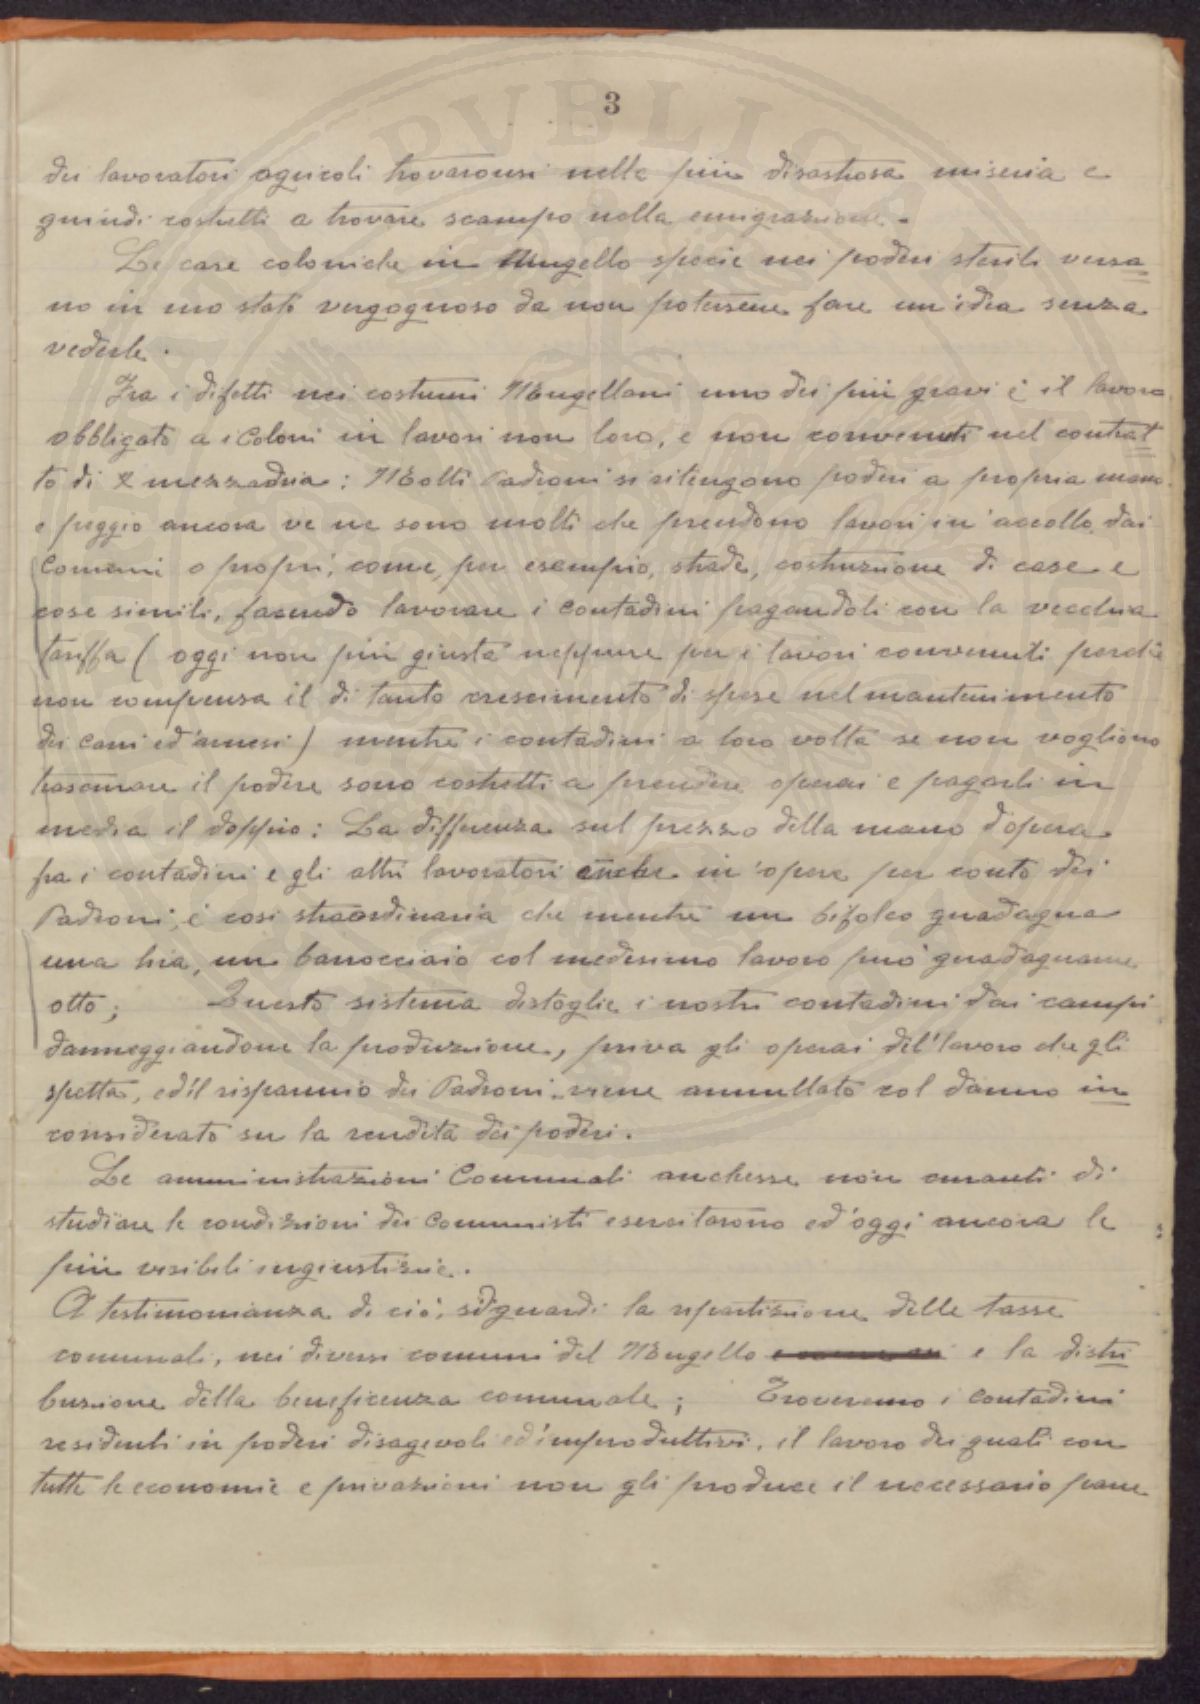 3
dei lavoratori agricoli trovaronsi nelle più disastrosa miseria e
quindi costretti a trovare scampo nella emigrazione.
Le case coloniche in Mugello specie nei poderi sterili versa=
no in uno stato vergognoso da non potersene fare un'idea senza
vederle.
Fra i difetti nei costumi Mugellani uno dei più gravi è il lavoro
obbligato a i Coloni in lavori non loro, e non convenuti nel contrat=
to di mezzadria: Molti Padroni si ritengono poderi a propria mano
e peggio ancora ve ne sono molti che prendono lavori in accollo dai
Comuni o propri, come, per esempio, strade, costruzione di case e
cose simili, facendo lavorare i contadini pagandoli con la vecchia
tariffa (oggi non più giusta neppure per i lavori convenuti perchè
non compensa il di tanto crescimento di spese nel mantenimento
dei carri ed'arnesi) mentre i contadini a loro volta se non vogliono
trascurare il podere sono costretti a prendere operai e pagarli in
media il doppio: La differenza sul prezzo della mano d'opera
fra i contadini e gli altri lavoratori anche in opere per conto dei
Padroni, è così straordinaria che mentre un bifolco guadagna
una lira, un barrocciaio col medesimo lavoro può guadagnarne
otto; Questo sistema distoglie i nostri contadini dai campi
danneggiandone la produzione, priva gli operai del'lavoro che gli
spetta, ed'il risparmio dei Padroni viene annullato col danno in=
considerato su la rendita dei poderi.
Le amministrazioni Comunali anchesse non curanti di
studiare le condizioni dei Comunisti esercitarono ed'oggi ancora le
più visibili ingiustizie.
A testimonianza di ciò, si guardi la ripartizione delle tasse
comunali, nei diversi comuni del Mugello e la distri=
buzione della beneficenza comunale; Troveremo i contadini
residenti in poderi disagevoli ed'improduttivi, il lavoro dei quali con
tutte le economie e privazioni non gli produce il necessario pane